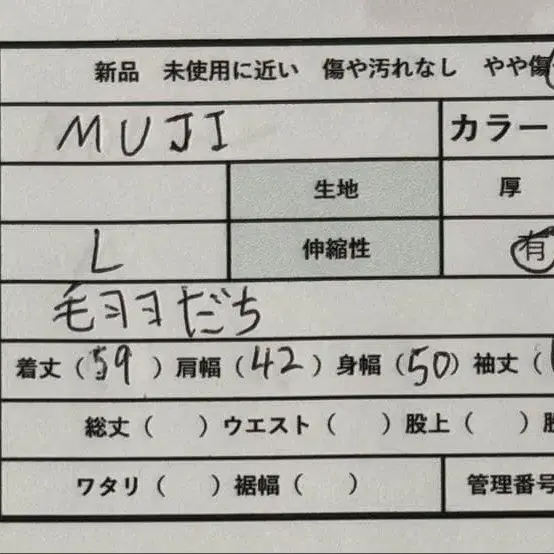 新品 未使用に近い 傷や汚れなし やや傷
MUJI カラー
生地 厚
L 伸縮性 有
毛羽だち
着丈(59)肩幅(42)身幅(50)袖丈(
総丈( )ウエスト( )股上( )股
ワタリ( )裾幅( ) 管理番号